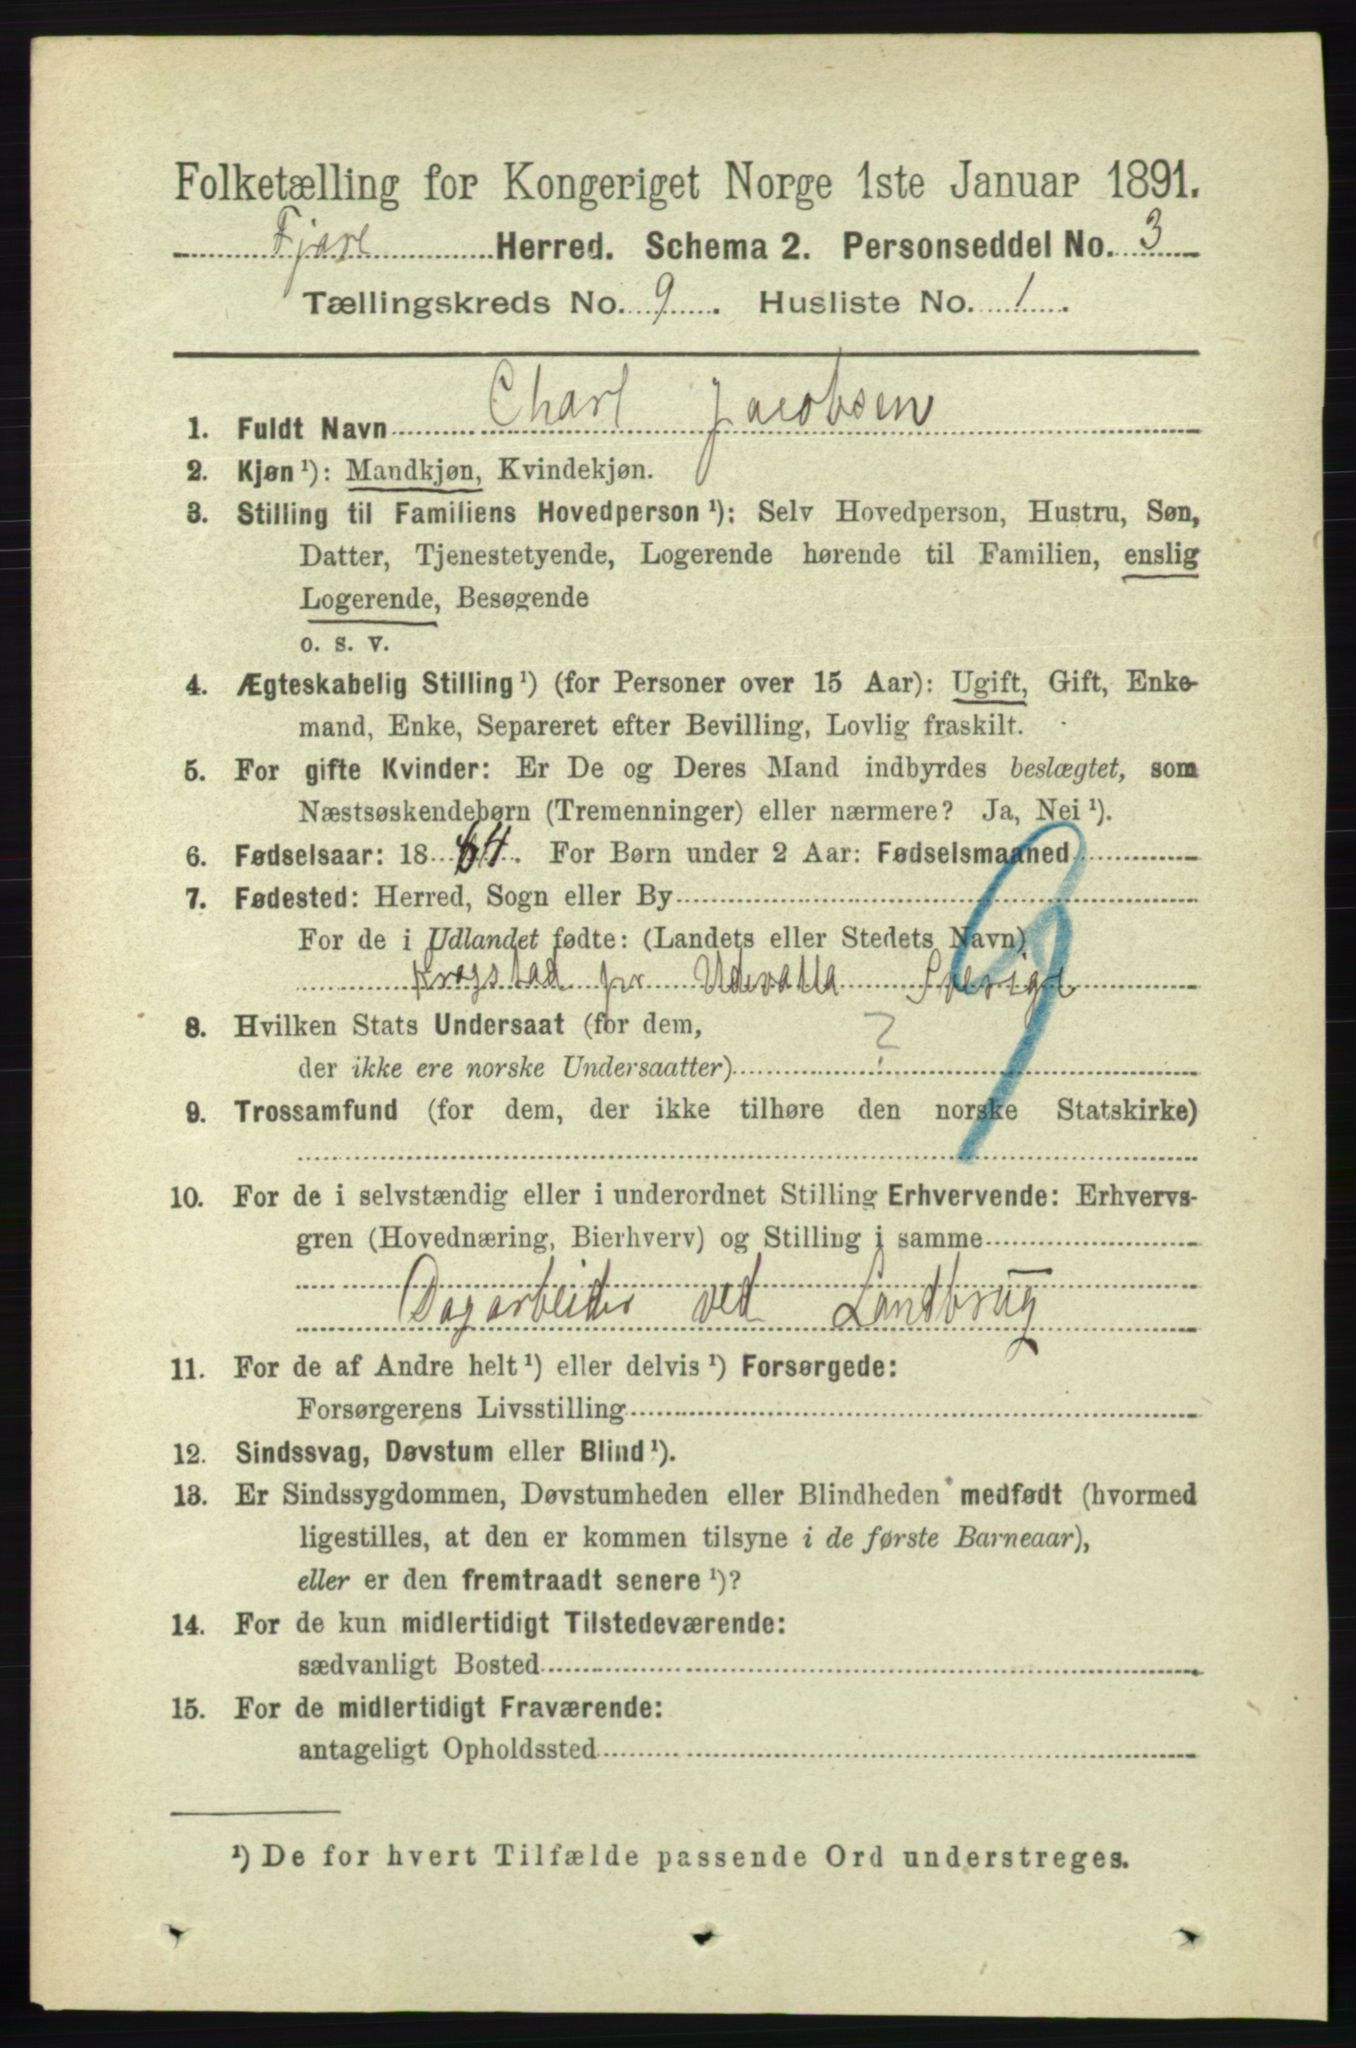 Folketælling for Kongeriget Norge 1ste Januar 1891.
Fjære Herred. Schema 2. Personseddel No. 3
Tællingskreds No. 9. Husliste No. 1.
1. Fuldt Navn Charl Jacobsen
2. Kjøn ¹): Mandkjøn, Kvindekjøn.
3. Stilling til Familiens Hovedperson ¹): Selv Hovedperson, Hustru, Søn,
Datter, Tjenestetyende, Logerende hørende til Familien, enslig
Logerende, Besøgende
o. s. v.
4. Ægteskabelig Stilling ¹) (for Personer over 15 Aar): Ugift, Gift, Enke-
mand, Enke, Separeret efter Bevilling, Lovlig fraskilt.
5. For gifte Kvinder: Er De og Deres Mand indbyrdes beslægtet, som
Næstsøskendebørn (Tremenninger) eller nærmere? Ja, Nei ¹).
6. Fødselsaar: 1864. For Børn under 2 Aar: Fødselsmaaned
7. Fødested: Herred, Sogn eller By
For de i Udlandet fødte: (Landets eller Stedets Navn)
Krogstad pr Udevalla Sverige
8. Hvilken Stats Undersaat (for dem, ?
der ikke ere norske Undersaatter)
9. Trossamfund (for dem, der ikke tilhøre den norske Statskirke)
10. For de i selvstændig eller i underordnet Stilling Erhvervende: Erhvervs-
gren (Hovednæring, Bierhverv) og Stilling i samme
Dagarbeider ved Landbrug
11. For de af Andre helt ¹) eller delvis ¹) Forsørgede:
Forsørgerens Livsstilling
12. Sindssvag, Døvstum eller Blind ¹).
13. Er Sindssygdommen, Døvstumheden eller Blindheden medfødt (hvormed
ligestilles, at den er kommen tilsyne i de første Barneaar),
eller er den fremtraadt senere ¹)?
14. For de kun midlertidigt Tilstedeværende:
sædvanligt Bosted
15. For de midlertidigt Fraværende:
antageligt Opholdssted
¹) De for hvert Tilfælde passende Ord understreges.